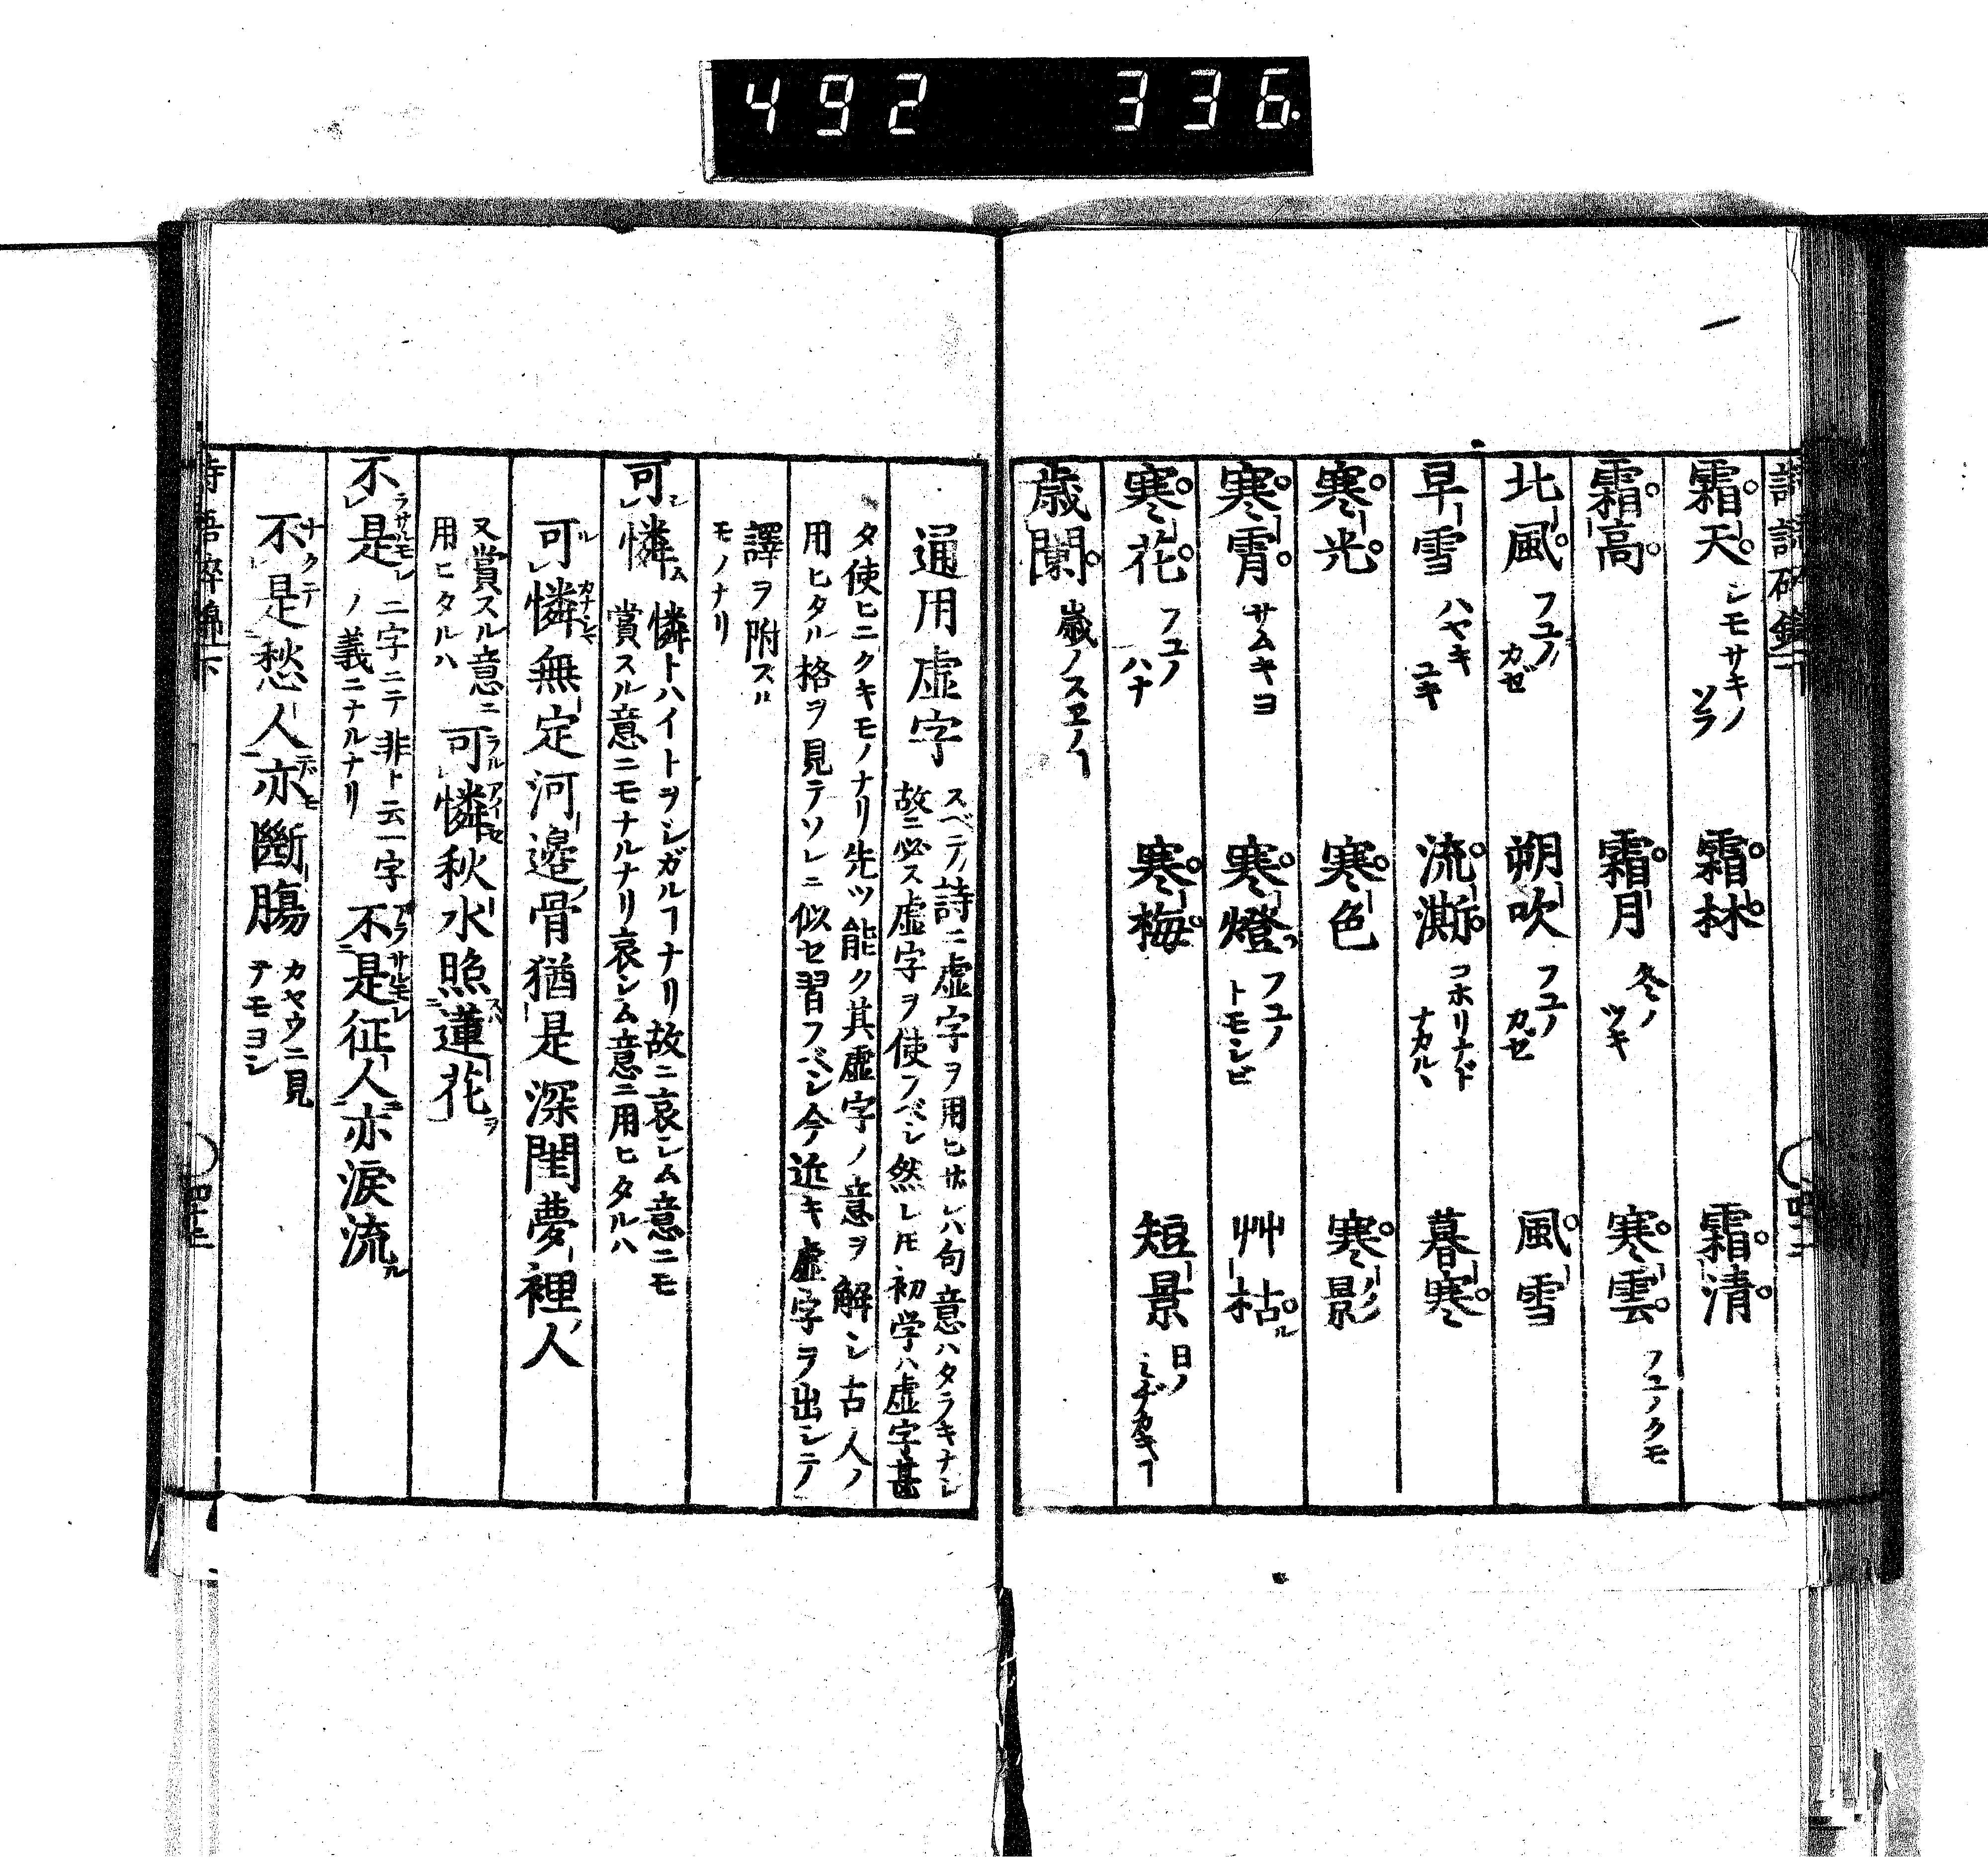 492 336
霜天 シモサキノソラ 霜林 霜清
霜高 霜月 冬ノツキ 寒雲 フユノクモ
北風 フユノカゼ 朔吹 フユノカゼ 風雪
早雪 ハヤキユキ 流澌 コホリナドナカルヽ 暮寒
寒光 寒色 寒影
寒霄 サムキヨ 寒燈 フユノトモシビ 艸枯ル
寒花 フユノハナ 寒梅 短景 日ノミヂカキヿ
歳闌 歳ノスヱノヿ
通用虚字 スベテノ詩ニ虚字ヲ用ヒサレハ句意ハタラキナシ
故ニ必ス虚字ヲ使フベシ然レ𪜈初学ハ虚字甚
タ使ヒニクキモノナリ先ツ能ク其虚字ノ意ヲ解シ古人ノ
用ヒタル格ヲ見テソレニ似セ習フベシ今近キ虚字ヲ出シテ
譯ヲ附スル
モノナリ
可憐 憐トハイトヲシガルヿナリ故ニ哀シム意ニモ
賞スル意ニモナルナリ哀シム意ニ用ヒタルハ
可憐無定河邊骨猶是深閨夢裡人
又賞スル意ニ
用ヒタルハ
可憐秋水照蓮花
不是 二字ニテ非ト云一字
ノ義ニナルナリ
不是征人亦淚流
不是愁人亦斷腸 カヤウニ見
テモヨシ